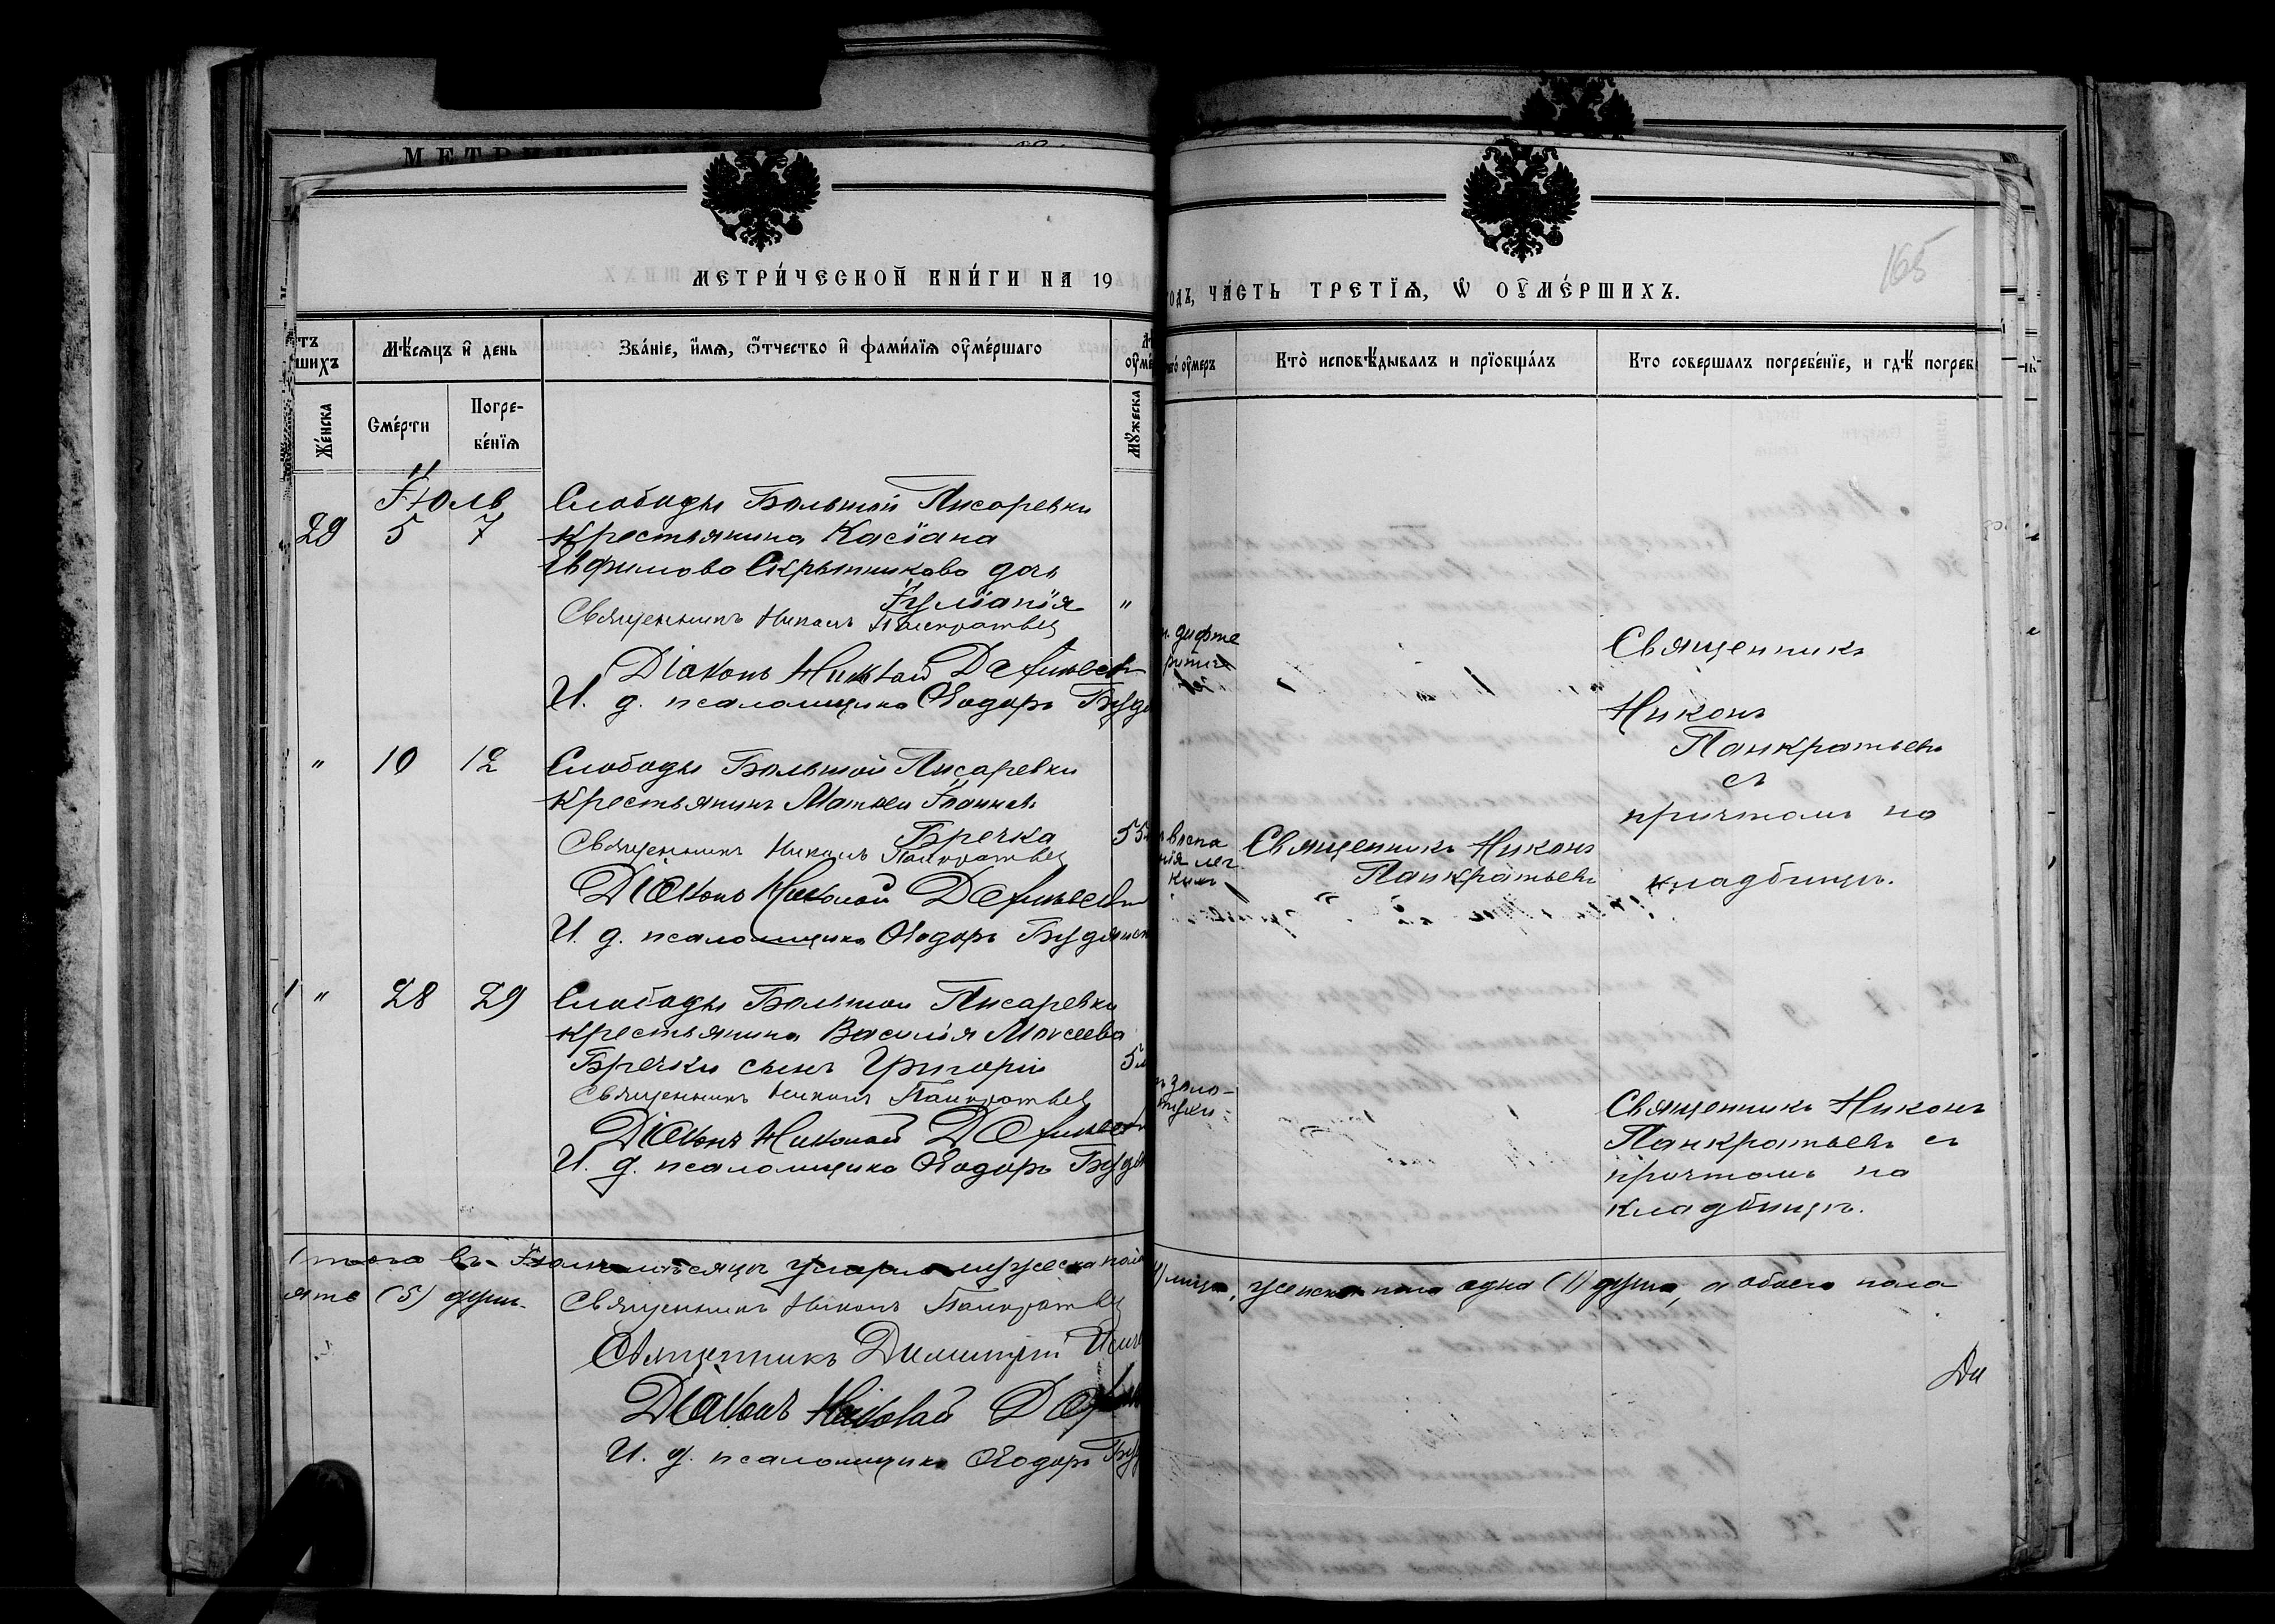 МЕТРИ́ЧЕСКОЙ КНИ́ГИ НА 19
годъ, ЧА́СТЬ ТРЕ́ТІѦ, Ѡ ОУМЕ́РШИХЪ.
165
Мѣ́сѧцъ и день
Зва́ніе, и́мѧ, о́тчество и фами́лїѧ оуме́ршаго
Кто̀ исповѣ́дывалъ и прїобща́лъ
Кто совершалъ погребе́нїе, и гдѣ̀ погреб
Же́нска
Сме́рти
Погре-
бе́нїѧ
Мꙋ́жеска
Іюль
29 5 7
Слободы Большой Писаревки
крестьянина Касіана
Ефимова Скрынникова дочь
Іуліанія "
Священникъ Никонъ Панкратьевъ
Діаконъ Николай
И. д. псаломщика Ѳеодоръ
дифте
рита
Священникъ
Никонъ
Панкратьевъ
съ
причтомъ на
кладбищѣ.
" 10 12
Слободы Большой Писаревки
крестьянинъ Матѳей Іоанновъ
Бречка 55
Священникъ Никонъ Панкратьевъ
Діаконъ Николай
И. д. псаломщика Ѳеодоръ Будянск
воспа
нія лег
кихъ
Священникъ Никонъ
Панкратьевъ
" 28 29
Слободы Большой Писаревки
крестьянина Василія Моисеева
Бречки сынъ Григорій 5
Священникъ Никонъ Панкратьевъ
Діаконъ Николай
И. д. псаломщика Ѳеодоръ
золо-
тухи
Священникъ Никонъ
Панкратьевъ съ
причтомъ на
кладбищѣ.
Итого въ Іюлѣ мѣсяцѣ умерло мужеска пола
женска пола одна (1) душа, а обоего пола
пять (5) душъ.
Священникъ Никонъ Панкратьевъ
Священникъ Димитрій
Діаконъ Николай
И. д. псаломщика Ѳеодоръ
Ди